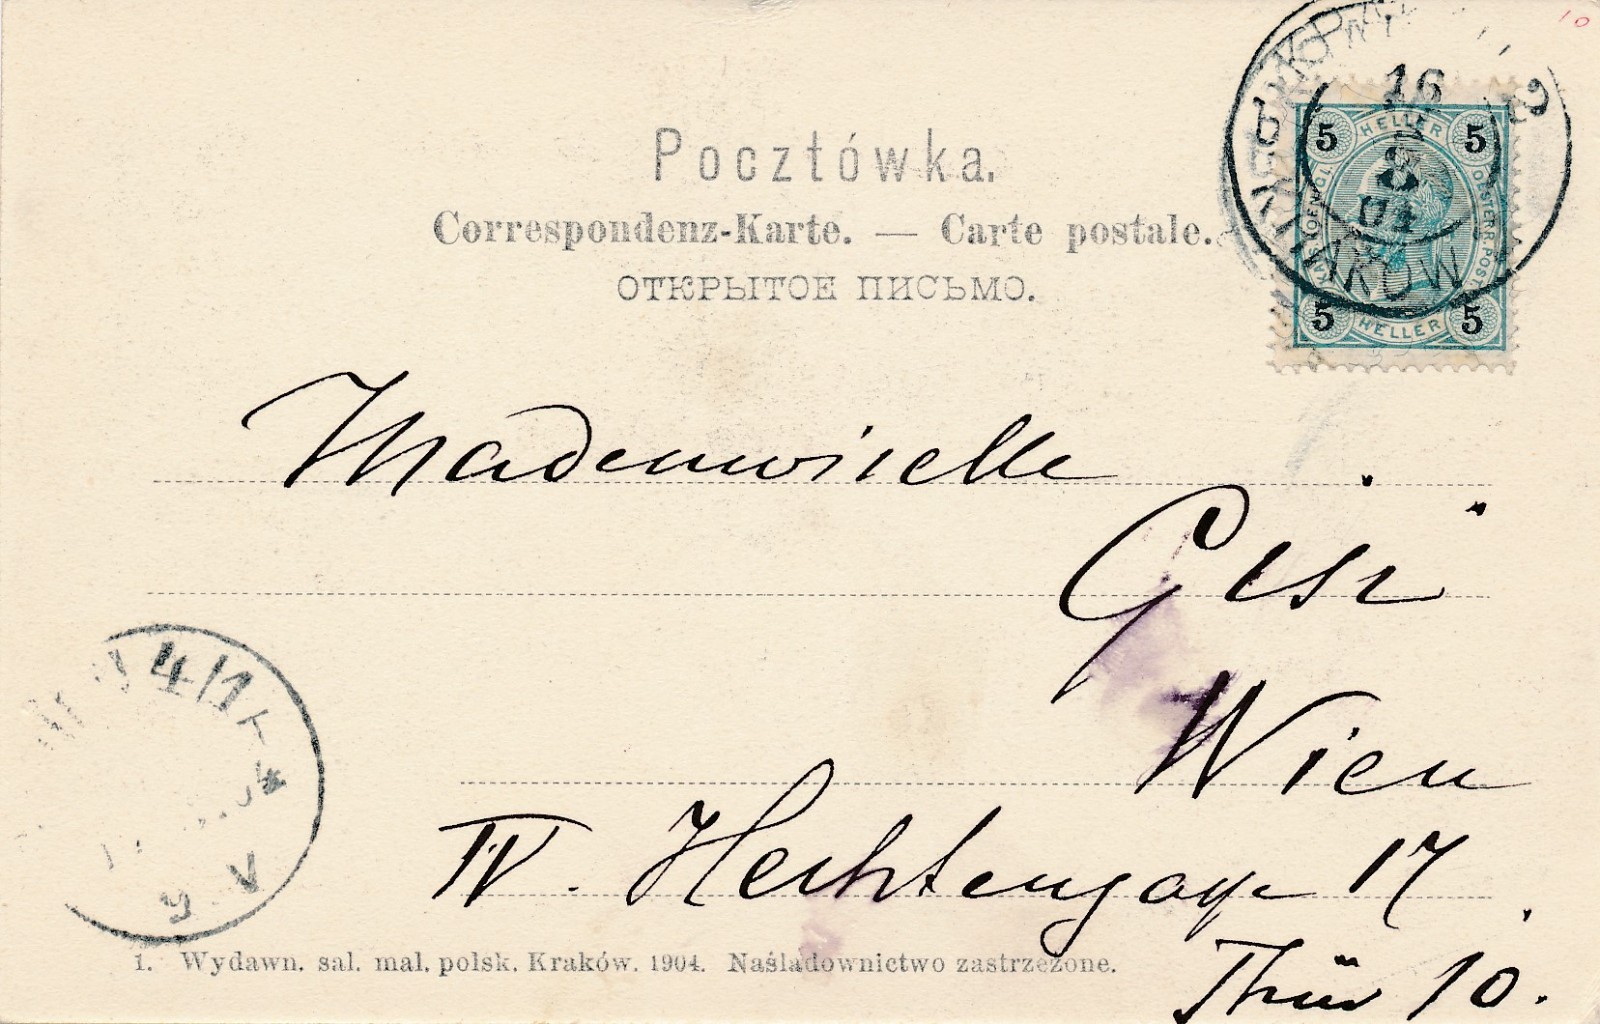 10
Pocztówka.
Correspondenz-Karte. — Carte postale.
ОТКРЫТОЕ ПИСЬМО.
5 HELLER 5
OESTERR. POST
5 HELLER 5
KRAKÓW
16
04
2
Mademoiselle
Gisi
Wien
IV. Hechtengasse 17,
Thür 10.
4/1
1. Wydawn. sal. mal. polsk. Kraków. 1904. Naśladownictwo zastrzeżone.